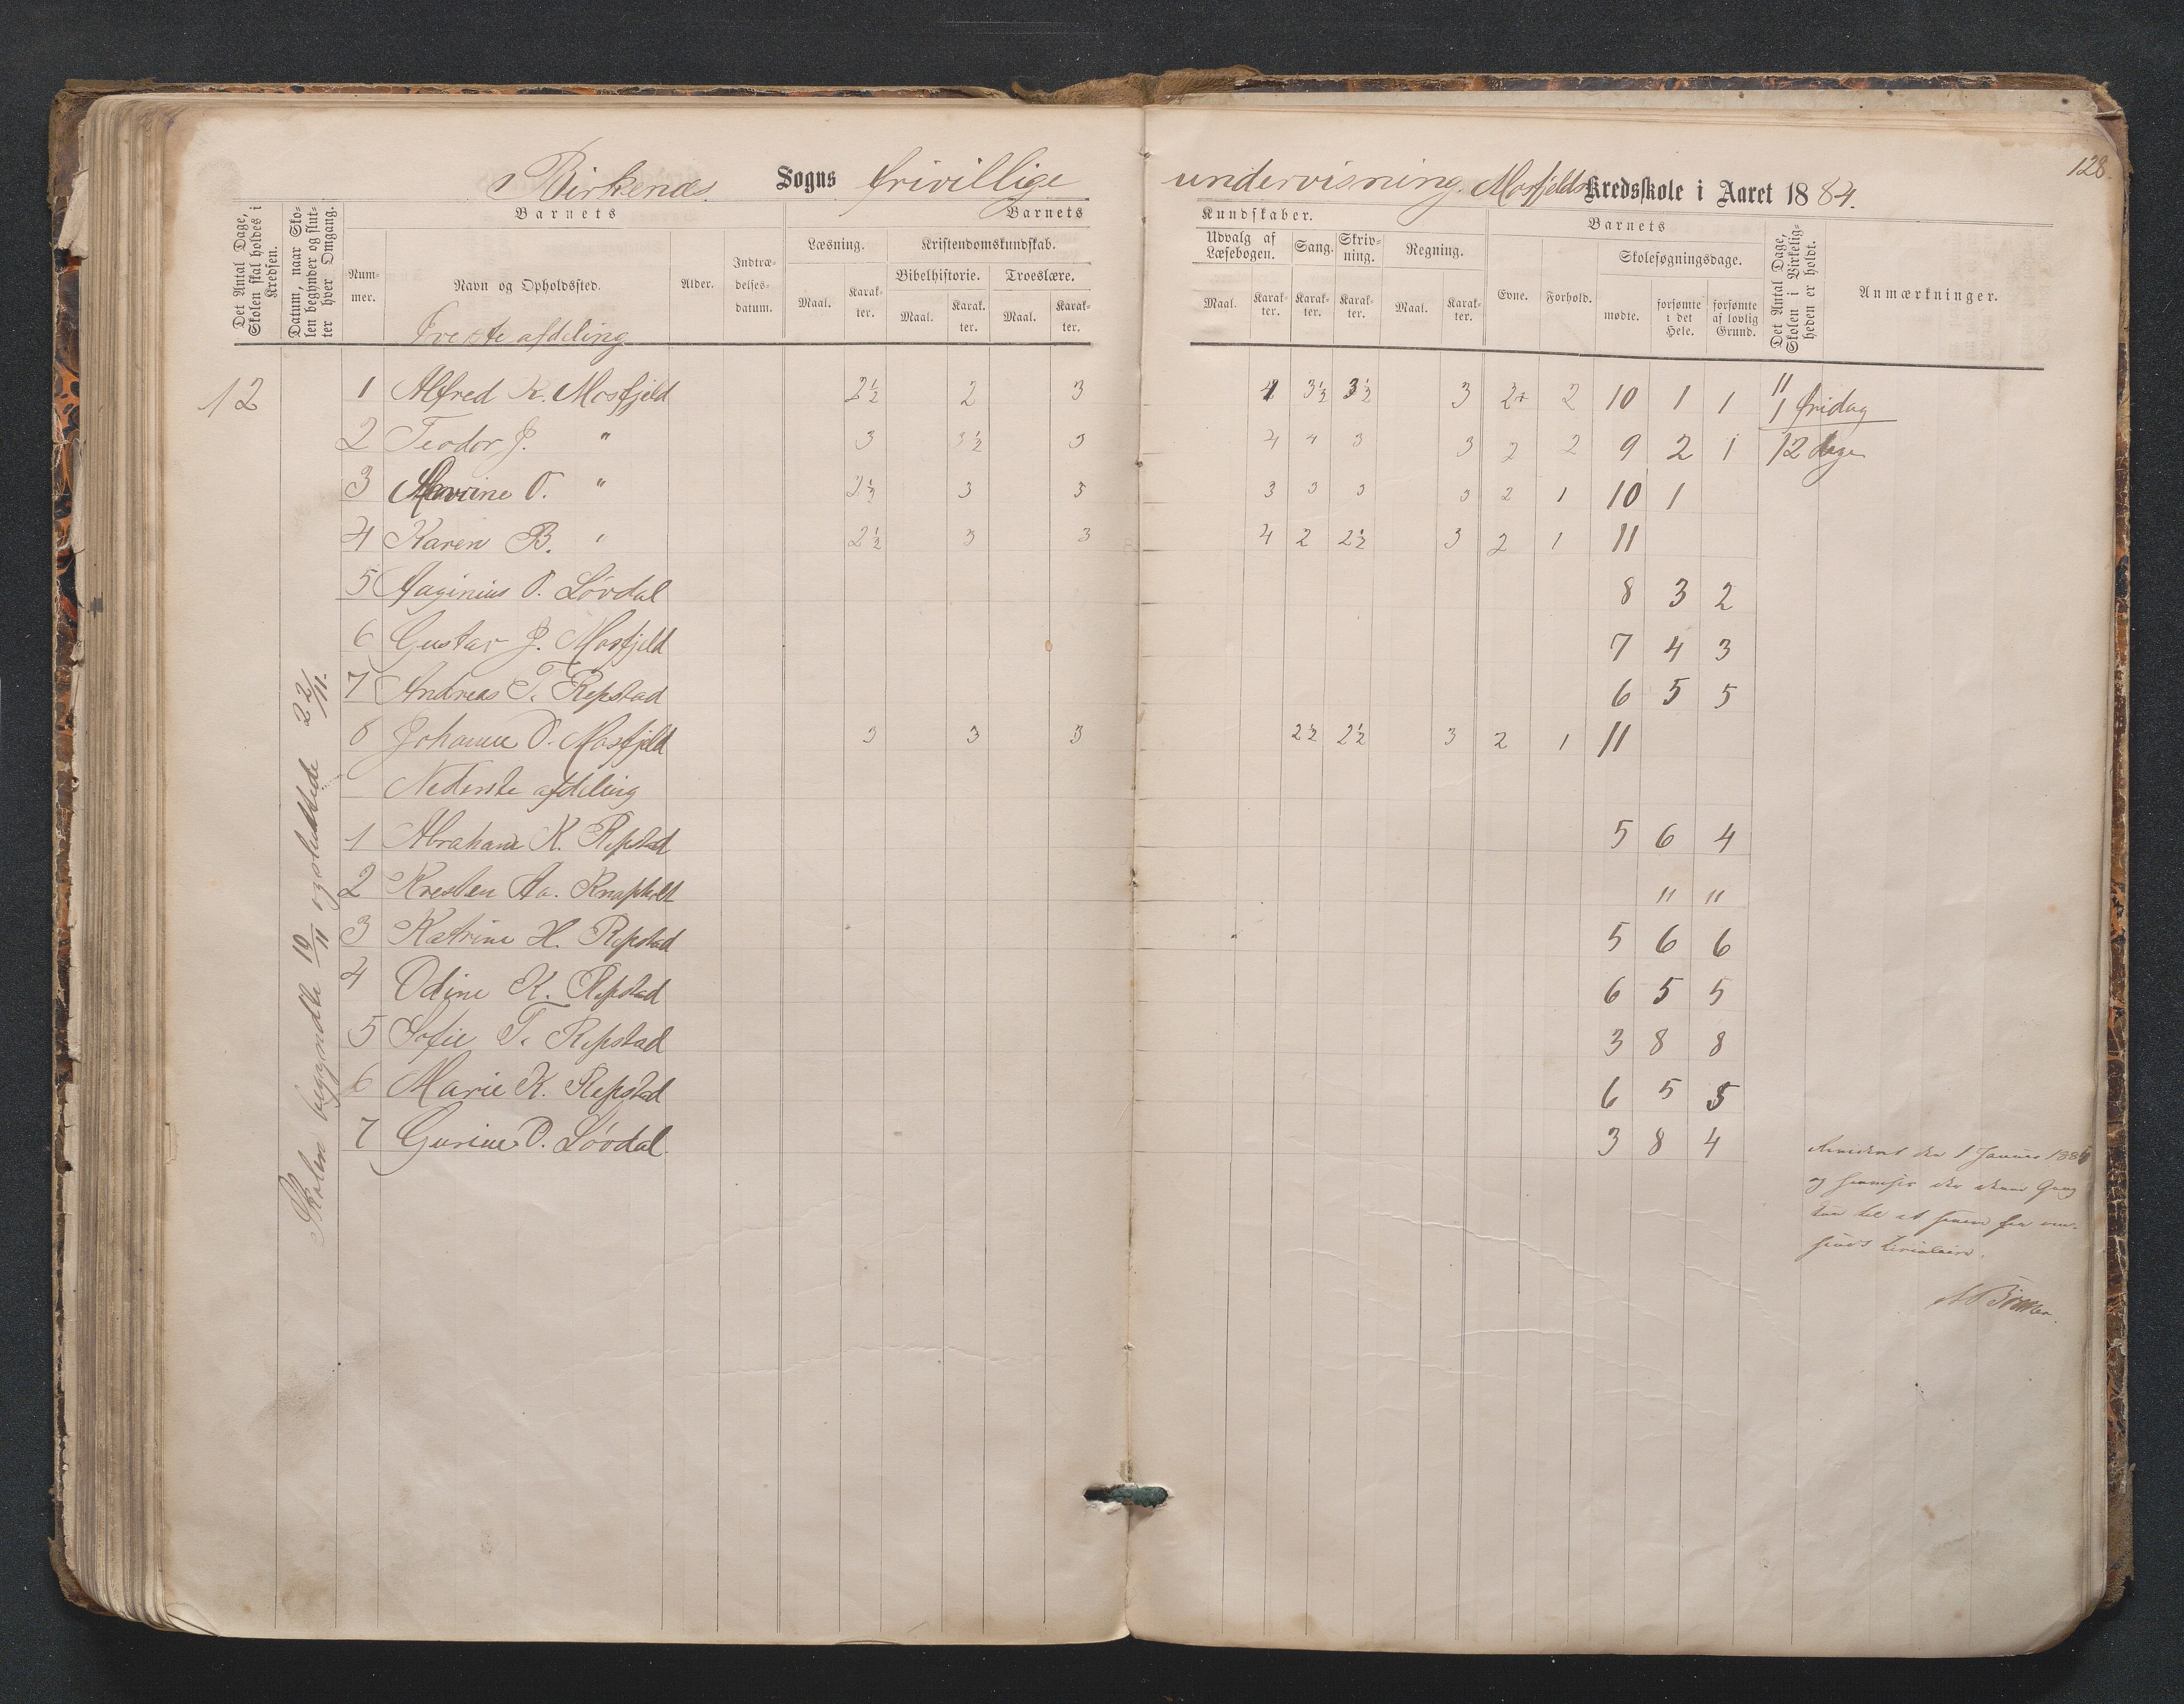 128.
Birkenæs Sogns frivillige undervisning. Mosfjelds Kredsskole i Aaret 1884.
Det Antal Dage, Skolen skal holdes i Kredsen.
Datum, naar Skolen begynder og slutter hver Omgang.
Barnets
Barnets Kundskaber.
Barnets
Nummer.
Navn og Opholdssted.
Alder.
Indtrædelsesdatum.
Læsning.
Kristendomskundskab.
Bibelhistorie.
Troeslære.
Udvalg af Læsebogen.
Sang.
Skrivning.
Regning.
Maal. Karakter. Maal. Karakter. Maal. Karakter. Maal. Karakter. Karakter. Karakter. Maal. Karakter.
Evne.
Forhold.
Skolesøgningsdage.
mødte.
forsømte i det Hele.
forsømte af lovlig Grund.
Det Antal Dage, Skolen i Virkeligheden er holdt.
Anmærkninger.
Øverste afdeling
12 1 Alfred K. Mosfjeld 2½ 2 3 4 3½ 3½ 3 2+ 2 10 1 1 11
1 fridag
2 Teodor J. " 3 3½ 3 4 4 3 3 2 2 9 2 1 12 dage
3 O. " 2½ 3 3 3 3 3 3 2 1 10 1
4 Karen B. " 2½ 3 3 4 2 2½ 3 2 1 11
5 Aaginius O. Løvdal 8 3 2
6 Gustav J. Mosfjeld 7 4 3
7 Andreas T. Repstad 6 5 5
8 Johanne O. Mosfjeld 3 3 3 2½ 2½ 3 2 1 11
Nederste afdeling
1 Abraham K. Repstad 5 6 4
2 Kresten Aa. Knapholt " "
3 Katrine H. Repstad 5 6 6
4 Odine K. Repstad 6 5 5
5 Sofie T. Repstad 3 8 8
6 Marie K. Repstad 6 5 5
7 Gurine O. Løvdal 3 8 4
Skolen begyndte 10/11 og sluttede 22/11.
Revideret den 1 Januar 1885